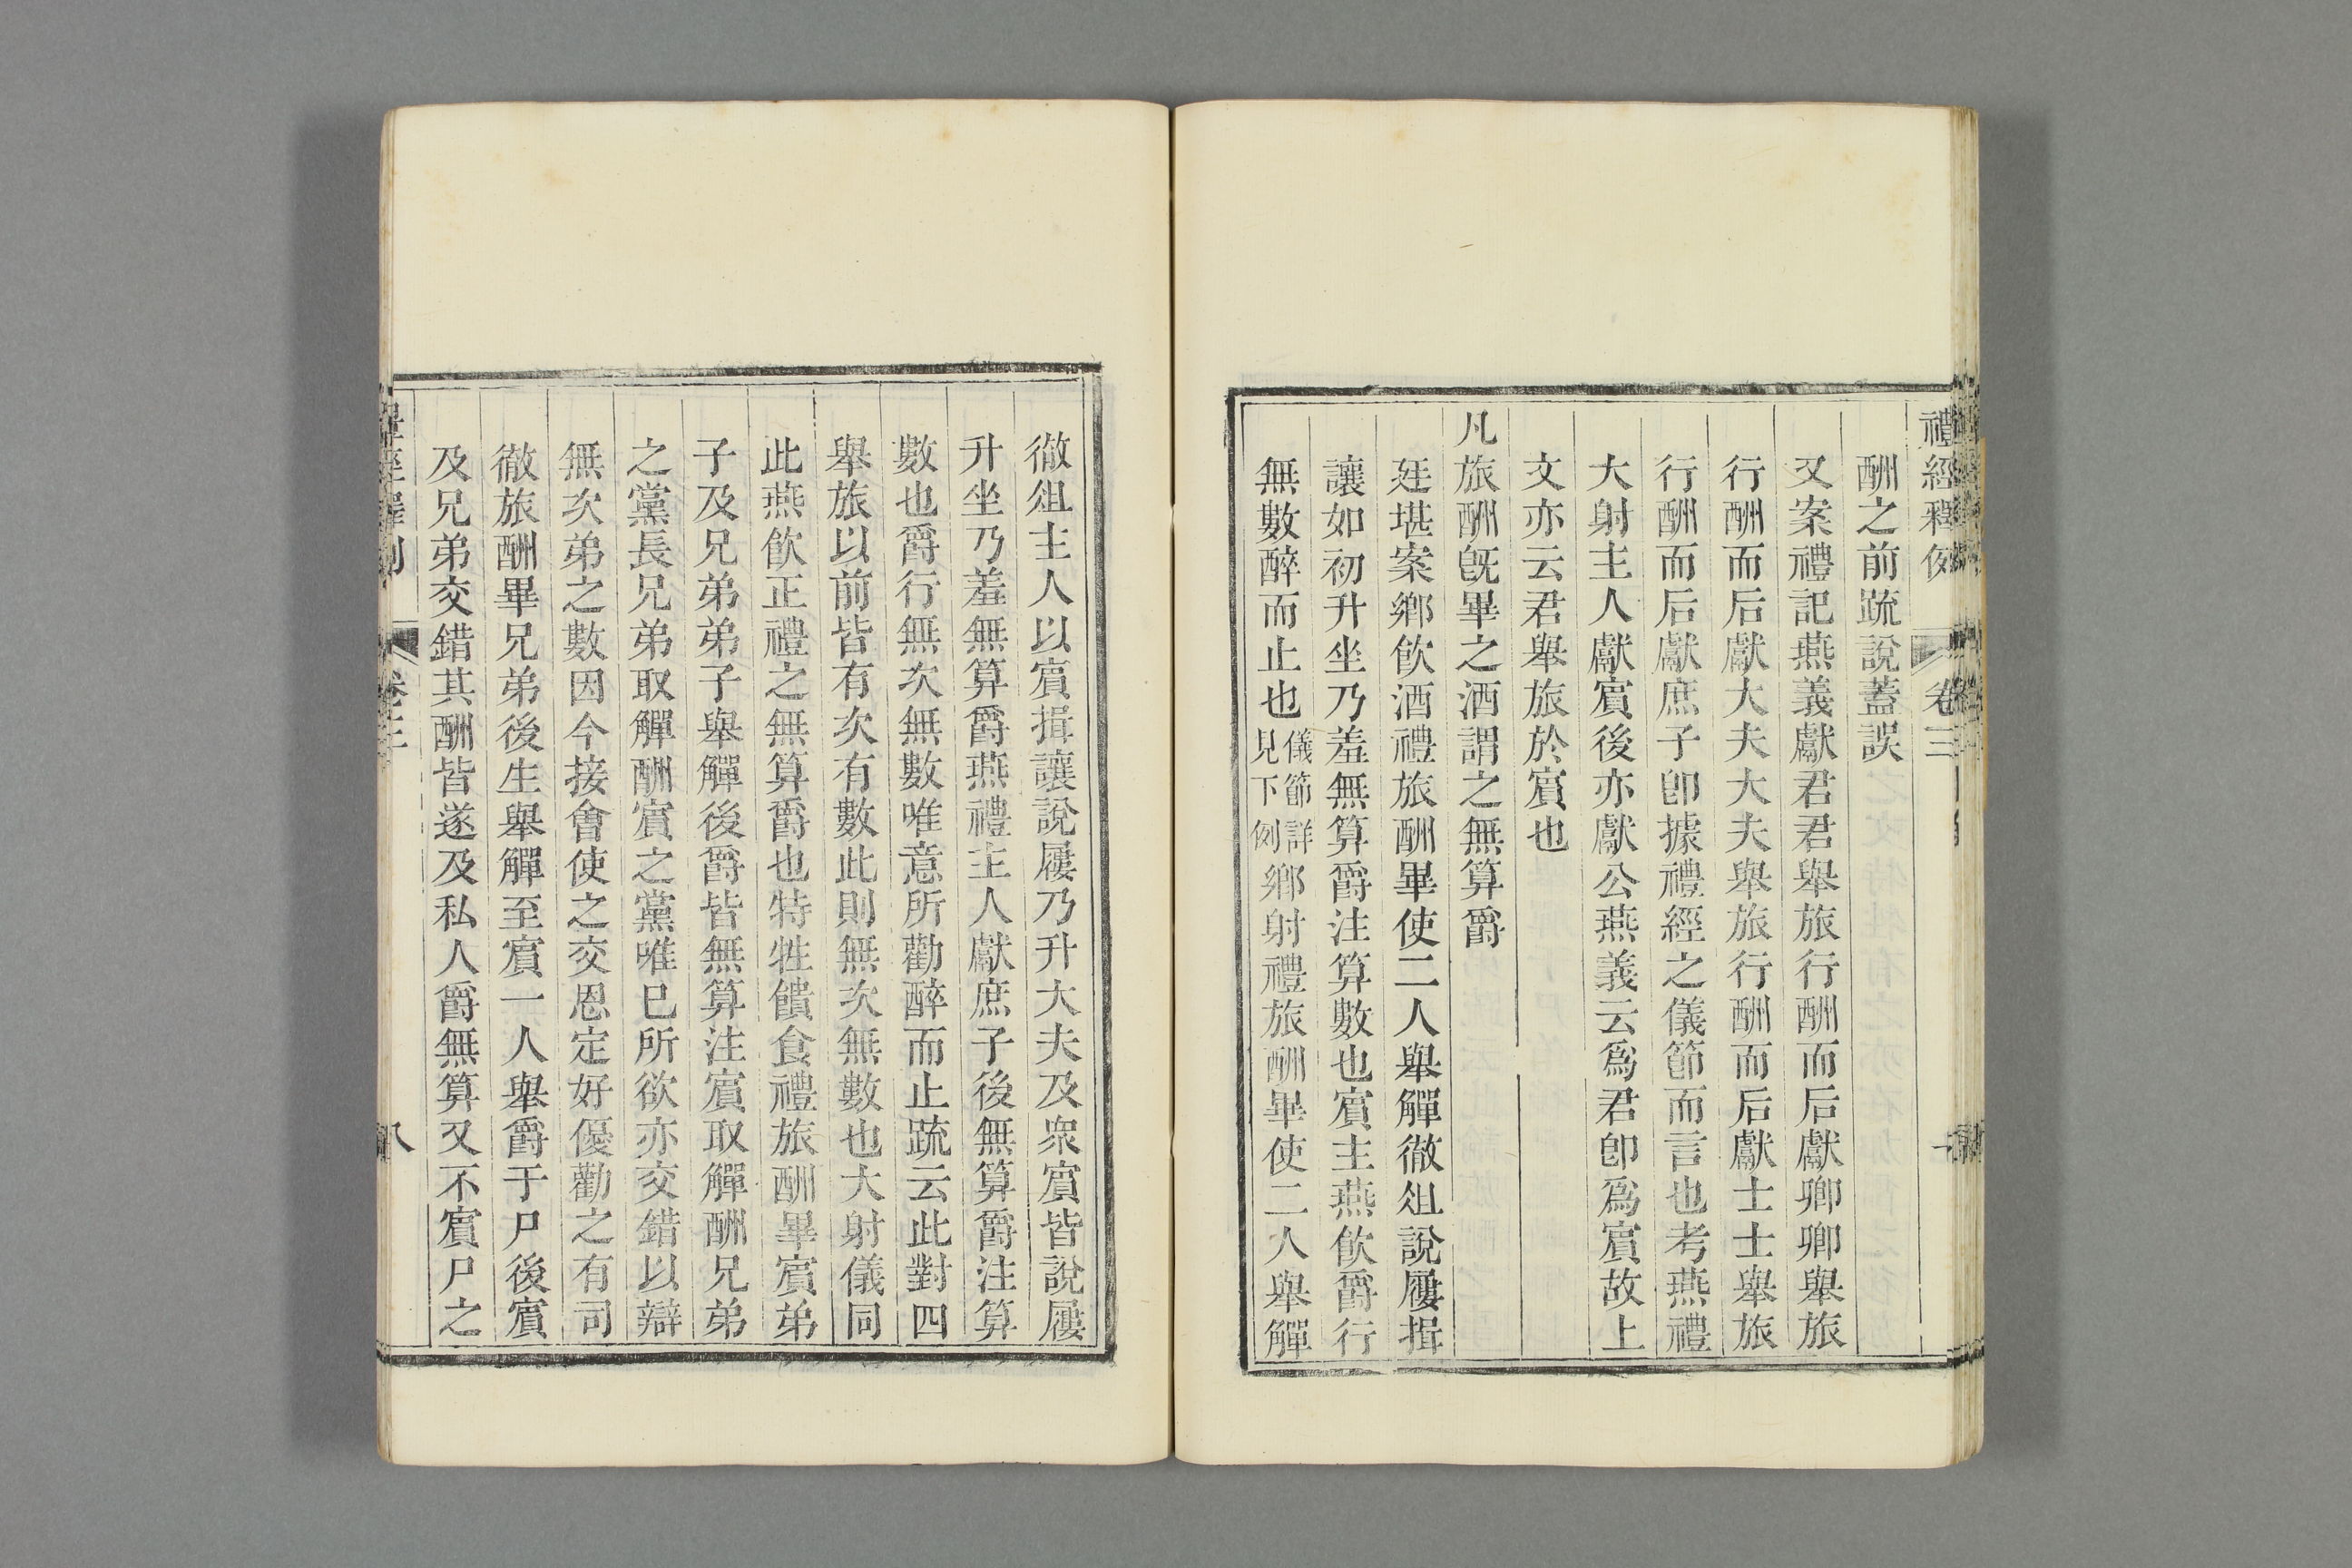 禮經釋例 卷三
酬之前疏說蓋誤
又案禮記燕義獻君君舉旅行酬而后獻卿卿舉旅
行酬而后獻大夫大夫舉旅行酬而后獻士士舉旅
行酬而后獻庶子卽據禮經之儀節而言也考燕禮
大射主人獻賓後亦獻公燕義云爲君卽爲賓故上
文亦云君舉旅於賓也
凡旅酬旣畢之酒謂之無算爵
廷堪案鄉飲酒禮旅酬畢使二人舉觶徹俎說屨揖
讓如初升坐乃羞無算爵注算數也賓主燕飲爵行
無數醉而止也儀節詳見下例鄉射禮旅酬畢使二人舉觶
徹俎主人以賓揖讓說屨乃升大夫及衆賓皆說屨
升坐乃羞無算爵燕禮主人獻庶子後無算爵注算
數也爵行無次無數唯意所勸醉而止疏云此對四
舉旅以前皆有次有數此則無次無數也大射儀同
此燕飲正禮之無算爵也特牲饋食禮旅酬畢賓弟
子及兄弟弟子舉觶後爵皆無算注賓取觶酬兄弟
之黨長兄弟取觶酬賓之黨唯巳所欲亦交錯以辯
無次弟之數因今接會使之交恩定好優勸之有司
徹旅酬畢兄弟後生舉觶至賓一人舉爵于尸後賓
及兄弟交錯其酬皆遂及私人爵無算又不賓尸之
卷三 八